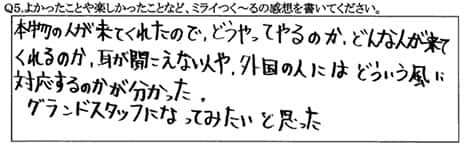 Q5.よかったことや楽しかったことなど、ミライつく～るの感想を書いてください。
本物の人が来てくれたので、どうやってやるのか、どんな人が来て
くれるのか、耳が聞こえない人や、外国の人にはどういう風に
対応するのかが分かった。
グランドスタッフになってみたいと思った